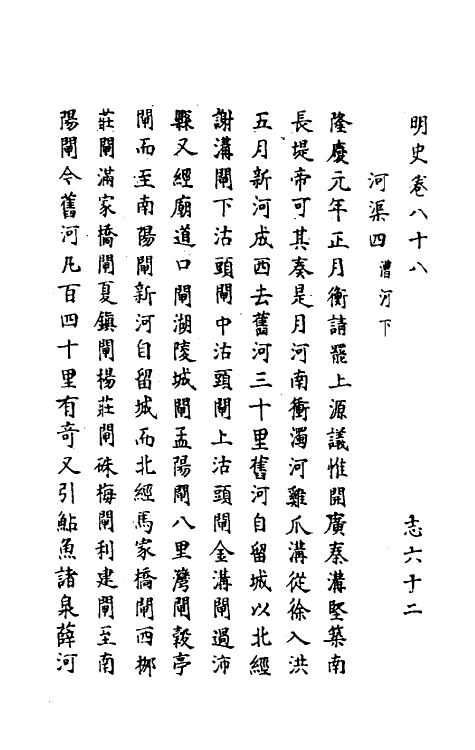 明史卷八十八　志六十二
河渠四 漕河下
隆慶元年正月衡請罷上源議惟開廣秦溝堅築南
長堤帝可其奏是月河南衝濁河雞爪溝從徐入洪
五月新河成西去舊河三十里舊河自留城以北經
謝溝閘下沽頭閘中沽頭閘上沽頭閘金溝閘過沛
縣又經廟道口閘湖陵城閘孟陽閘八里灣閘穀亭
閘而至南陽閘新河自留城而北經馬家橋閘西栁
莊閘滿家橋閘夏鎮閘楊莊閘硃梅閘利建閘至南
陽閘合舊河凡百四十里有奇又引鮎魚諸泉薛河